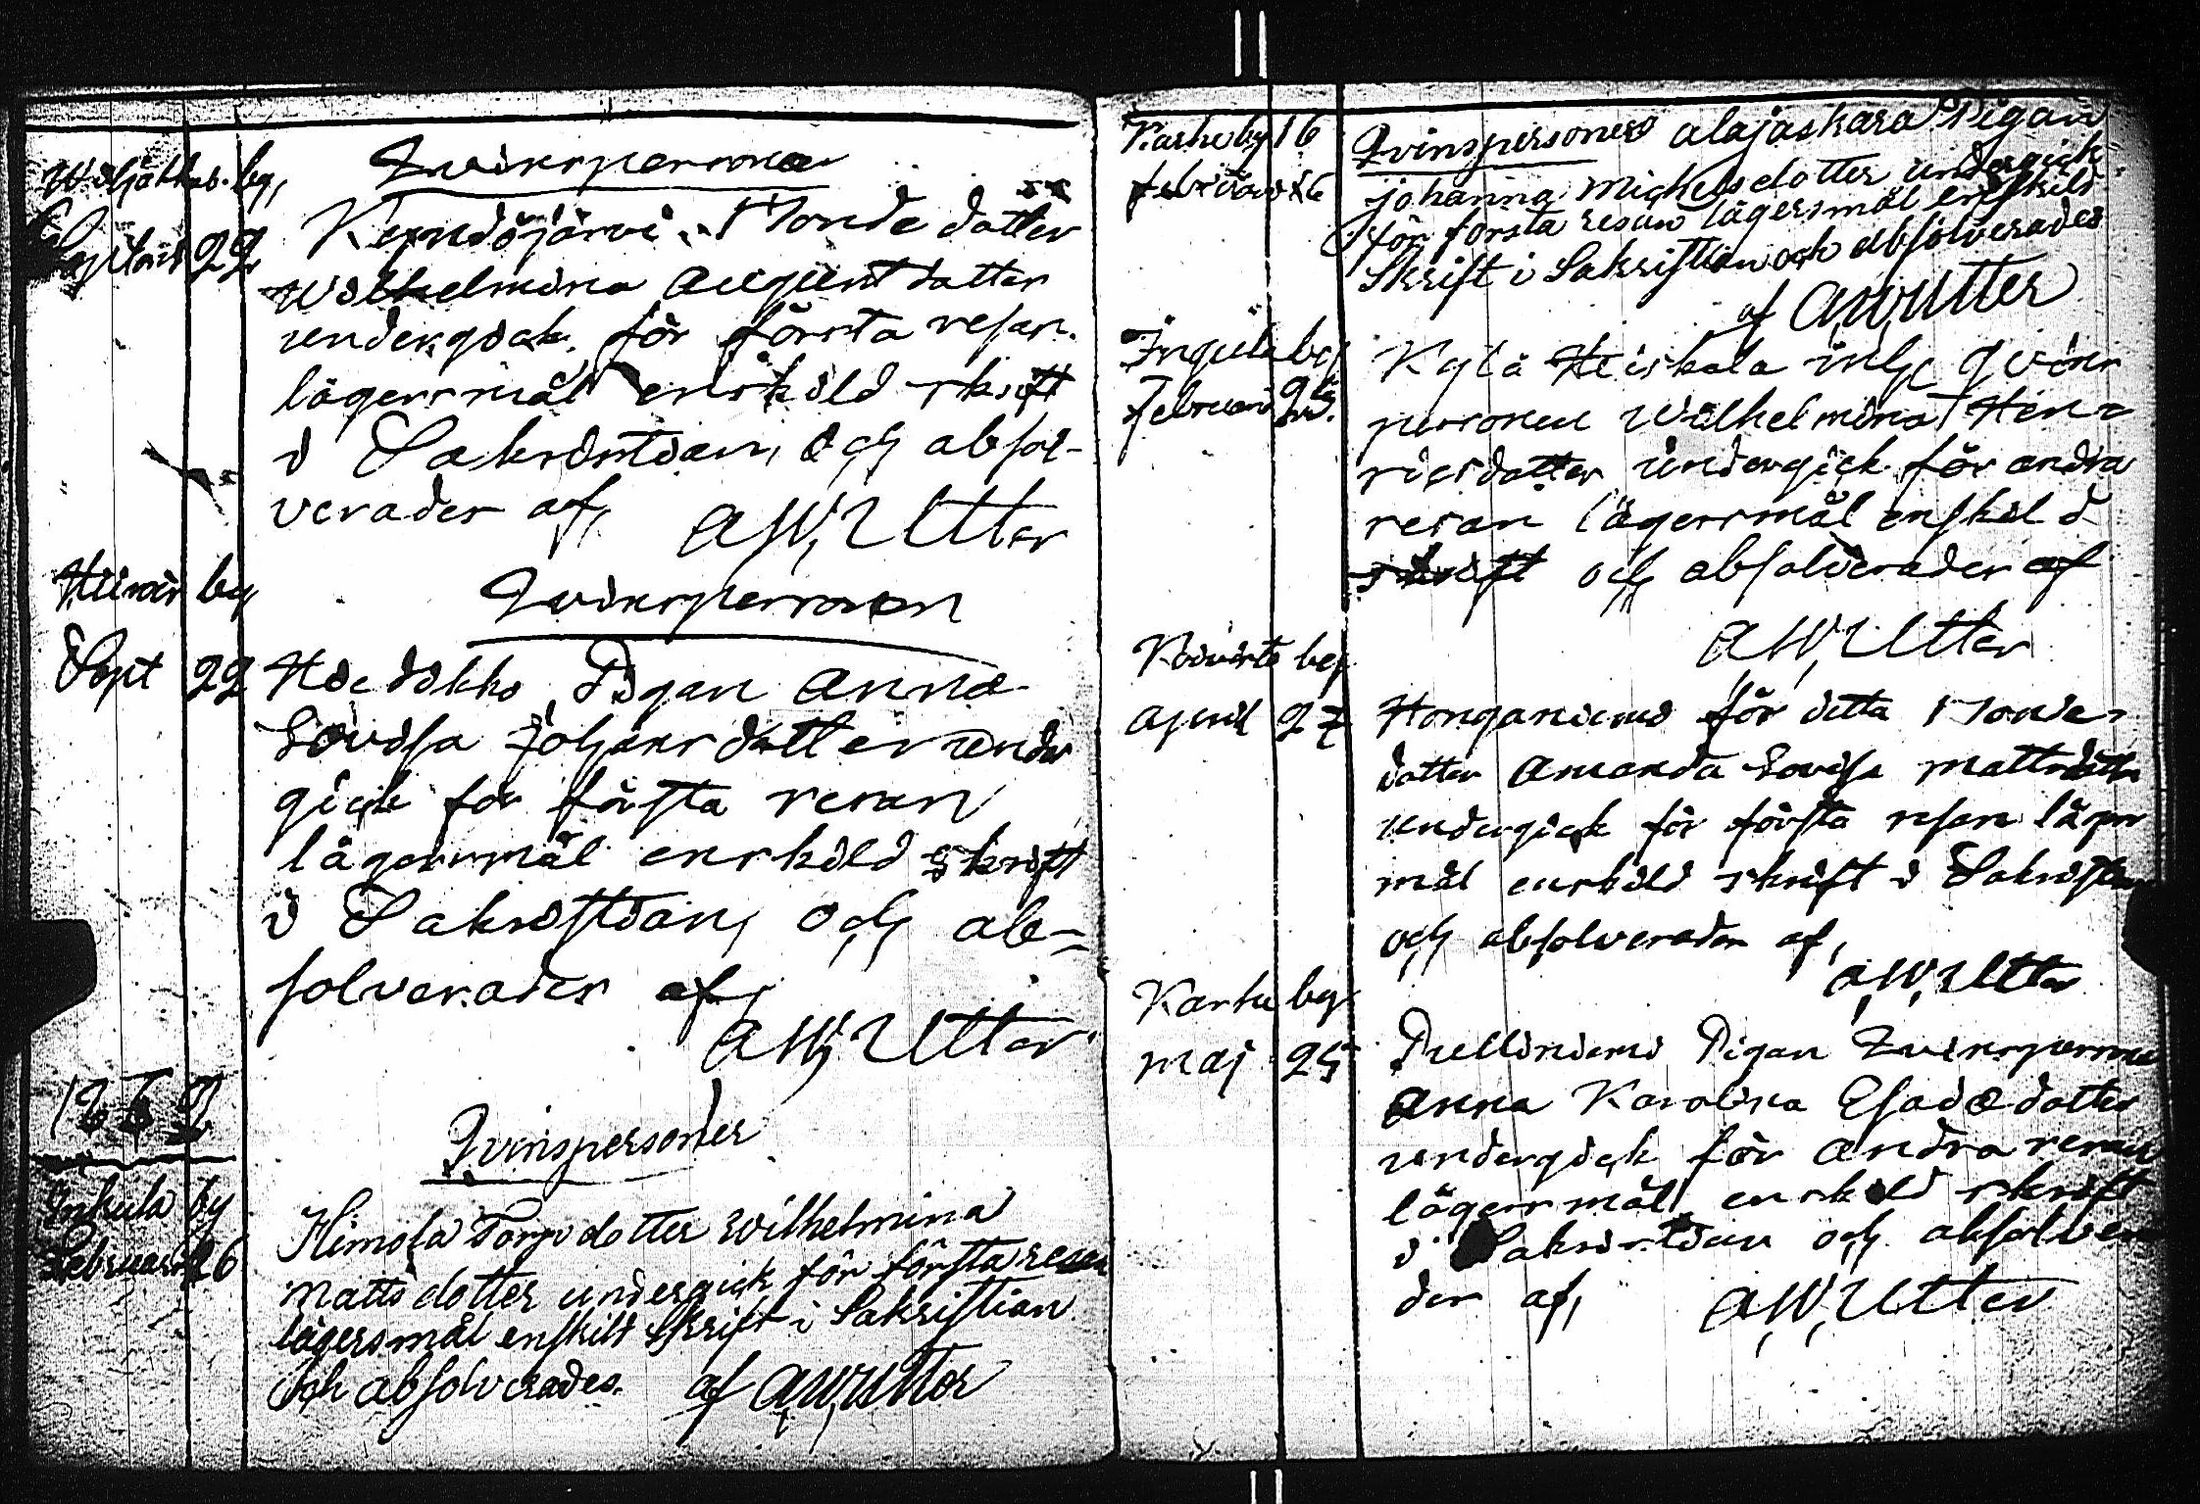 by,
Qvinspersoner
22
Bondedotter
Wilhelmina August dotter
undergick för första resan
lägersmål enskild skrift
i Sakristian, och absol-
verades af,
A,W, Utter
by
Qvinspersoner
Sept 22
Pigan Anna
Lovisa Johans dotter under
gick för första resan
lägersmål enskild skrift
i Sakristian, och ab-
solverades af,
A,W, Utter
Qvinspersoner
Inkula by
Februari 26
Himola Torp dotter Wilhelmina
Matts dotter undergick för första resan
lägersmål enskilt Skrift i Sakristian
Och absolverades. af A,W, Utter
Karhu by 16
Februari 16
Qvinspersoner alajaskara Pigan
Johanna Mickelsdotter undergick
för första resan lägersmål enskild
Skrift i Sakristian och absolverades
af A,W, Utter
by
Februari
Kylä Heiskala Qvins
personen Wilhelmina Hen-
ricsdotter undergick för andra
resan lägersmål enskild
skrift och absolverades af
A,W, Utter
by
April 27
Honganiemi för detta Bonde-
dotter Amanda Lovisa Mattsdotter
undergick för första resan lägers
mål enskild skrift i Sakristian
och absolverades af,
A,W, Utter
Karhu by
Maj 25
Pulliniemi Pigan Qvinspersonen
Anna Karolina Esaias dotter
undergick för andra resan
lägersmål enskild skrift
i Sakristian och absolvera
des af, A,W, Utter